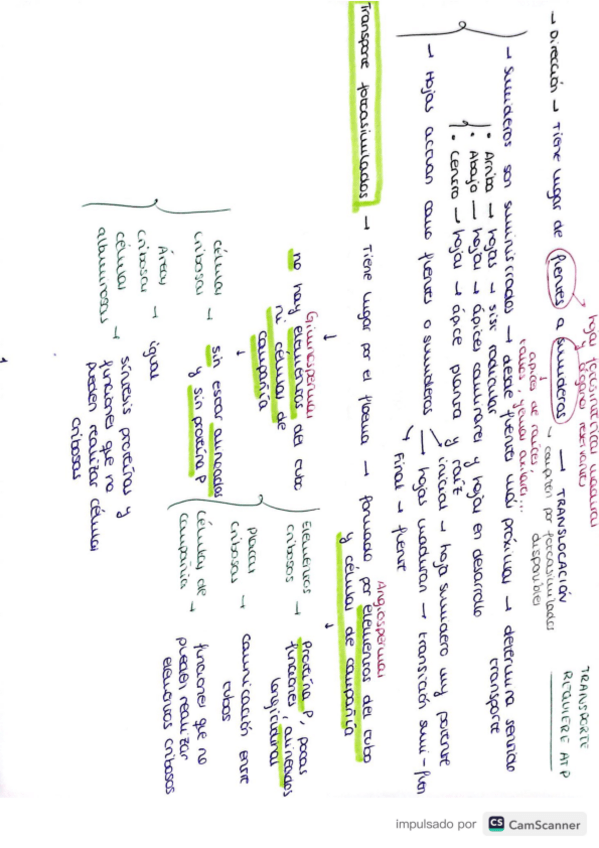 hojas fotosintéticas maduras
y órganos reservantes
TRANSPORTE
REQUIERE ATP
→ Dirección → Tiene lugar de fuentes a sumideros → TRANSLOCACIÓN
ápices de raíces,
raíces, yemas axilares...
compiten por fotoasimilados
disponibles
→ sumideros son suministrados → desde fuentes más próximas → determina sentido
transporte
• Arriba → hojas → sist radicular
• Abajo → hojas → ápices caulinares y hojas en desarrollo
• Centro → hojas → ápice planta y raíz
→ Hojas actúan como fuentes o sumideros
inicial → hoja sumidero muy potente
hojas maduran → transición sumi-fuen
Final → fuente
Transporte fotoasimilados → Tiene lugar por el floema → formado por elementos del tubo
y células de compañía
Angiospermas
Elementos
cribosos → Proteína P, pocas
funciones, alineados
longitudinal
placas
cribosas → comunicación entre
tubos
células de
compañía → funciones que no
pueden realizar
elementos cribosos
Gimnospermas
no hay elementos del tubo
ni células de
compañía
células
cribosas → sin estar alineadas
y sin proteína P
Áreas
cribosas → igual
células
albuminosas → síntesis proteínas y
funciones que no
pueden realizar células
cribosas
impulsado por CS CamScanner